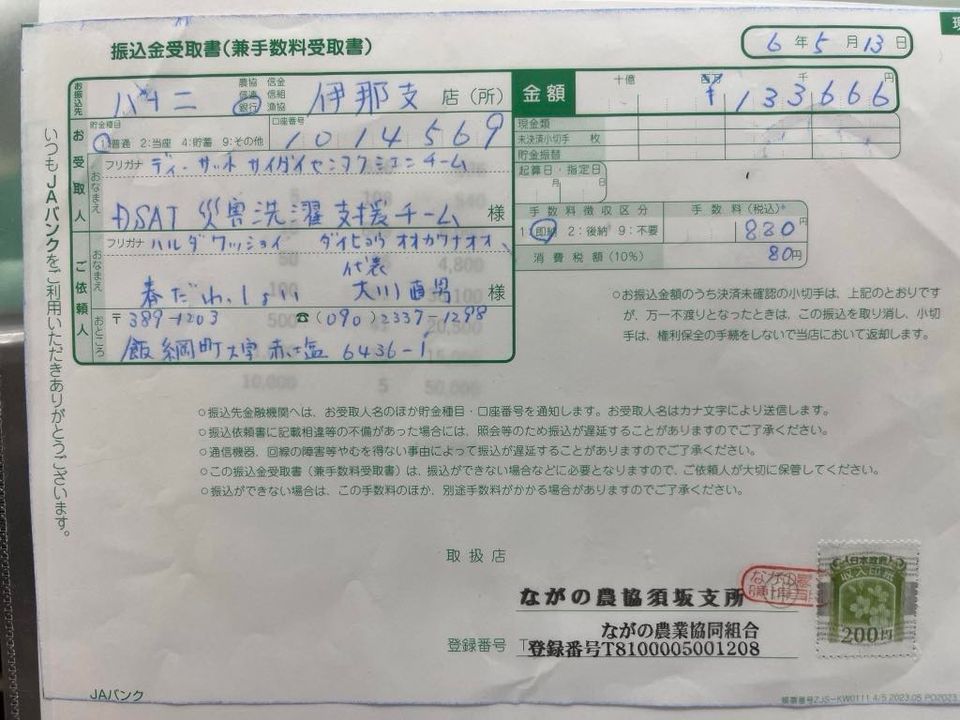 振込金受取書(兼手数料受取書)
6年5月13日
お振込先
ハチニ
農協 信金
信連 信組
銀行 漁協
伊那支 店(所)
金額
十億 百万 千 円
¥133666
貯金種目
1:普通 2:当座 4:貯蓄 9:その他
口座番号
1014569
現金類
未決済小切手 枚
貯金振替
起算日・指定日
月 日
お受取人
おなまえ
フリガナ ディーサット サイガイセンタクシエンチーム
DSAT 災害洗濯支援チーム 様
手数料徴収区分
手数料(税込)*
1:即納 2:後納 9:不要
880
消費税額(10%)
80円
ご依頼人
おなまえ
フリガナ ハルダワッショイ ダイヒョウ オオカワナオオ
代表
春だわっしょい 大川直男 様
おところ
〒389-1203 ☎(090)2337-1298
飯綱町大字赤塩 6436-1
○お振込金額のうち決済未確認の小切手は、上記のとおりですが、万一不渡りとなったときは、この振込を取り消し、小切手は、権利保全の手続をしないで当店において返却します。
いつもJAバンクをご利用いただきありがとうございます。
○振込先金融機関へは、お受取人名のほか貯金種目・口座番号を通知します。お受取人名はカナ文字により送信します。
○振込依頼書に記載相違等の不備があった場合には、照会等のため振込が遅延することがありますのでご了承ください。
○通信機器、回線の障害等やむを得ない事由によって振込が遅延することがありますのでご了承ください。
○この振込金受取書(兼手数料受取書)は、振込ができない場合などに必要となりますので、ご依頼人が大切に保管してください。
○振込ができない場合は、この手数料のほか、別途手数料がかかる場合がありますのでご了承ください。
取扱店
ながの農協須坂支所
ながの農業協同組合
登録番号 T
登録番号T8100005001208
日本政府
収入印紙
200円
JAバンク
帳票番号ZJS-KW0111 4/5 2023.05